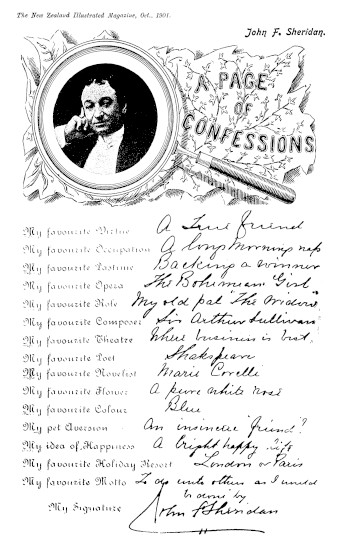 The New Zealand Illustrated Magazine, Oct., 1901.
John F. Sheridan.
A PAGE
OF
CONFESSIONS
My favourite Virtue A True friend
My favourite Occupation A long morning nap
My favourite Pastime Backing a winner
My favourite Opera "The Bohemian Girl"
My favourite Role My old pal "The Widow"
My favourite Composer Sir Arthur Sullivan
My favourite Theatre Where business is best.
My favourite Poet Shakspeare
My favourite Novelist Marie Corelli
My favourite Flower A pure white rose
My favourite Colour Blue
My pet Aversion An insincere "friend"?
My idea of Happiness A bright happy life
My favourite Holiday Resort London or Paris
My favourite Motto To do unto others as I would
be done by
My Signature John F Sheridan